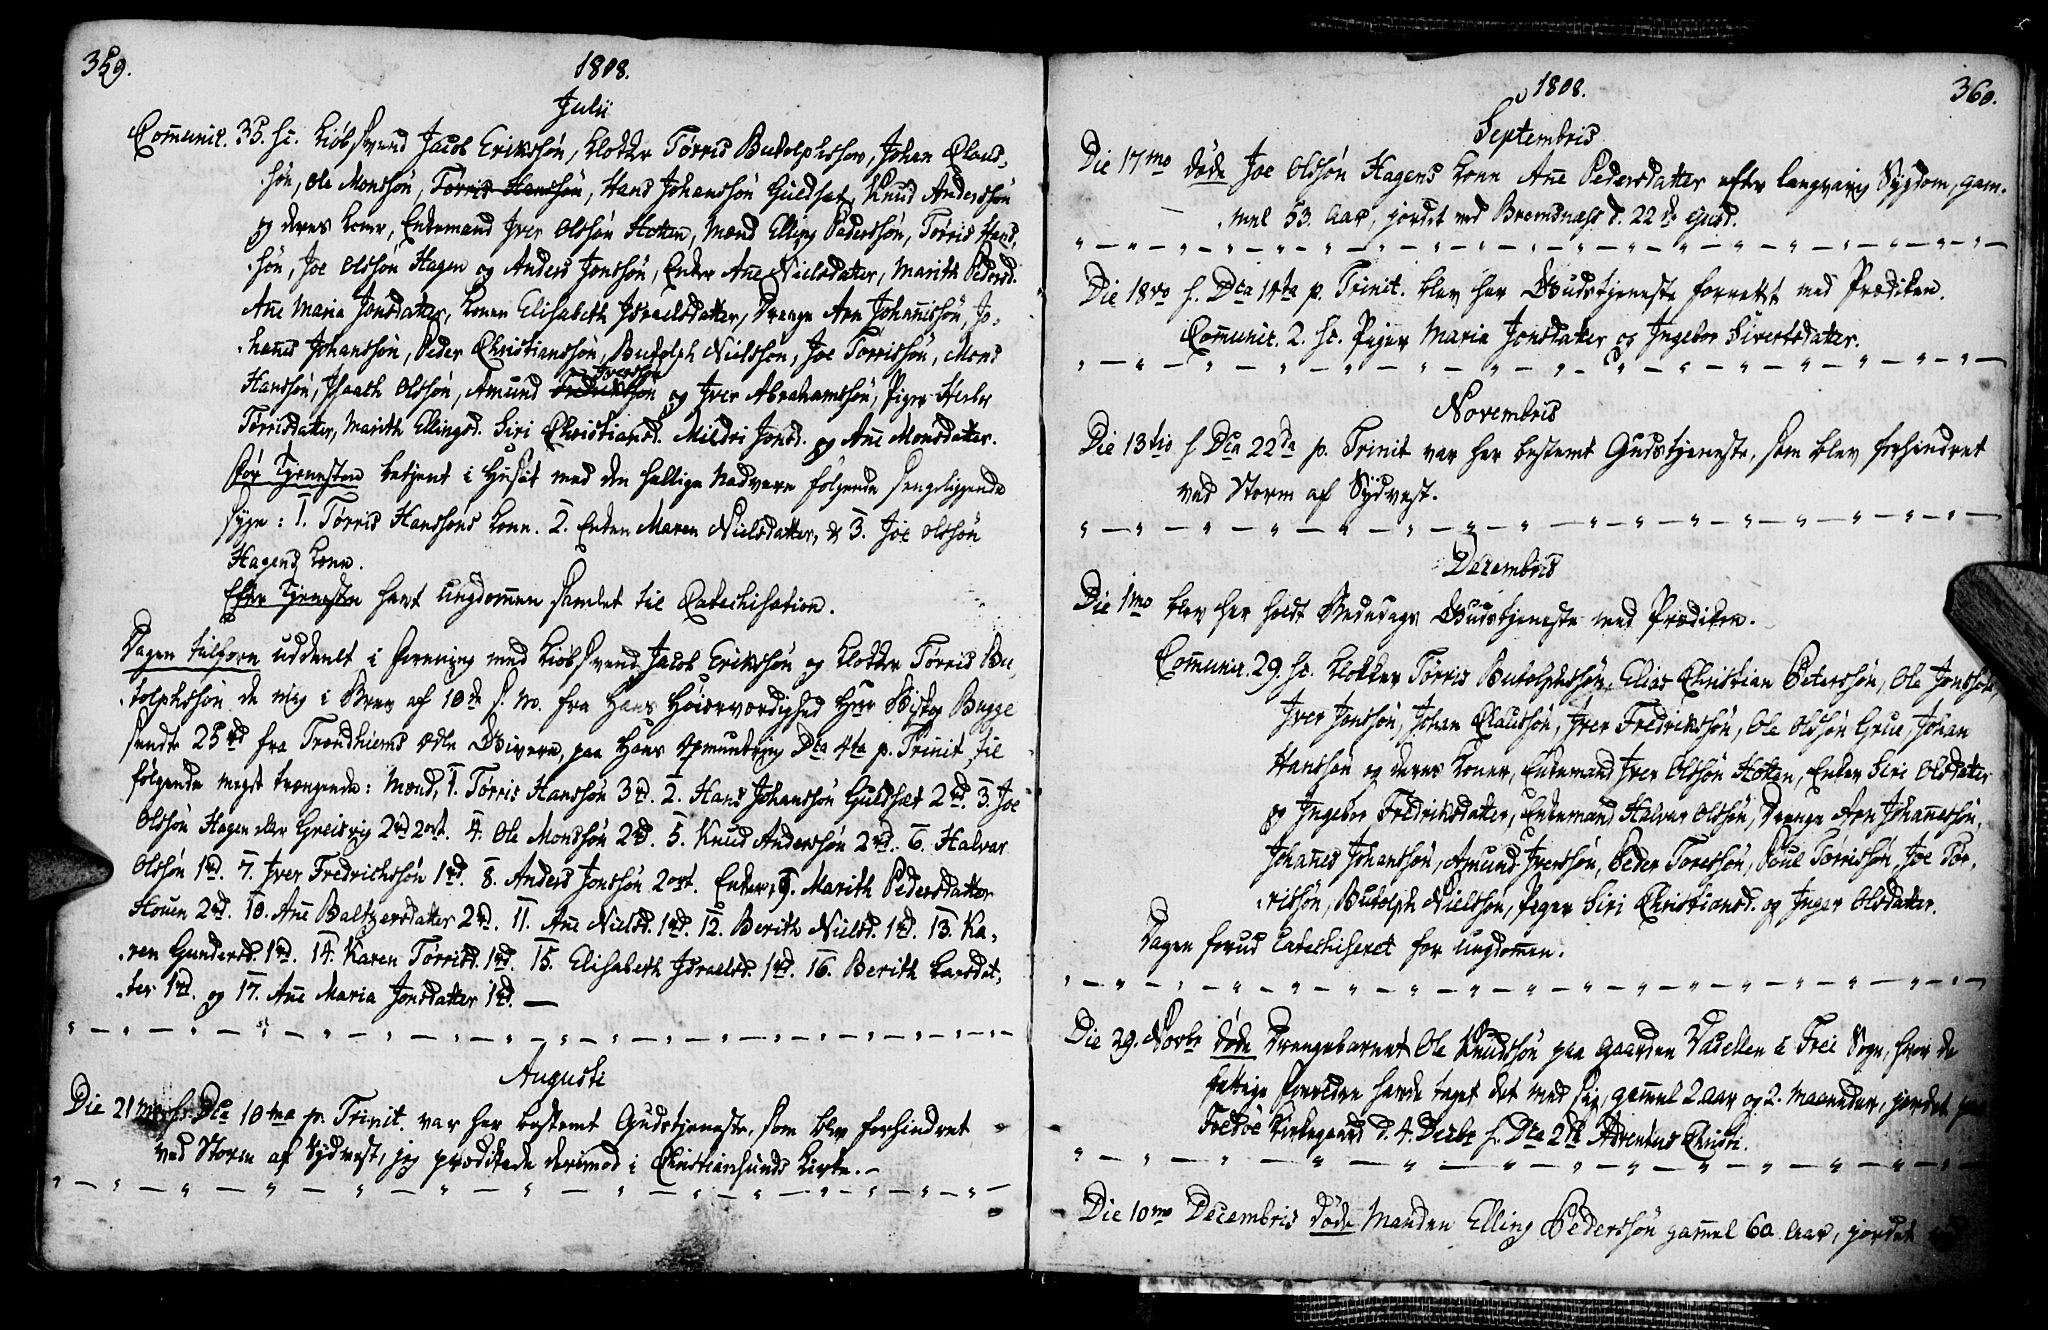 359.
1808.
Julii
Com̄unic. 35. sc. Kiöbsvend Jacob Eriksøn, Klokker Tørris Budolphssøn, Johan Claus-
søn, Ole Monssøn, Tørris Hanssøn, Hans Johanssøn Guldset, Knud Anderssøn
og deres Koner, Enkemand Iver Olssøn Hotten, Mænd Elling Pederssøn, Tørris Hans-
søn, Joe Olssøn Hagen og Anders Jonssøn, Enker Ane Nielsdatter, Marith Pedersd.
Ane Maria Jonsdatter, Konen Elisabeth Israelsdatter, Drenge Arn Johan̄issøn, Jo-
han̄es Johanssøn, Peder Christianssøn, Budolph Nielssøn, Joe Tørrissøn, Mons
Iverssøn
Hanssøn, Isaach Olssøn, Amund Fredrikssøn og Iver Abrahamssøn, Piger Herbor
Tørrisdatter, Marith Ellingsd. Siri Christiansd. Mildri Jonsd. og Ane Monsdatter.
Før Tjenesten betjent i Huset med den hellige Nadvere følgende sengeliggende
syge: 1. Tørris Hanssøns Kone. 2. Enken Maren Nielsdatter, & 3. Joe Olssøn
Hagens Kone.
Efter Tjenesten havt Ungdommen samlet til Catechisation.
Dagen tilforn uddeelt i forening med Kiöbsvend Jacob Erikssøn og Klokker Tørris Bu-
tolphssøn de mig i Brev af 10de s. M. fra Hans Høiærværdighed Herr Biskop Bugge
sendte 25 rd fra Trondhiems ædle Givere, paa Hans Opmuntring Dca 4ta p. Trinit. til
følgende mest trængende: Mænd, 1. Tørris Hanssøn 3 rd. 2. Hans Johanssøn Guldset 2 rd. 3. Joe
Olssøn Hagen eller Greisvig 2 rd 2 ort. 4. Ole Monssøn 2 rd. 5. Knud Anderssøn 2 rd. 6. Halvar
Olssøn 1 rd. 7. Iver Fredrichssøn 1 rd. 8. Anders Jonssøn 2 ort. Enker, 9. Marith Pedersdatter
Houen 2 rd. 10. Ane Baltzersdatter 2 rd. 11. Ane Nielsd. 1 rd. 12. Berith Nielsd. 1 rd. 13. Ka-
ren Gundersd. 1 rd. 14. Karen Tørrisd. 1 rd. 15. Elisabeth Israelsd. 1 rd. 16. Berith Larsdat-
ter 1 rd. og 17. Ane Maria Jonsdatter 1 rd. —
Augusti
Die 21mo s. Dca 10ma p. Trinit. var her bestemt Gudstjeneste, som blev forhindret
ved Storm af Sydvest, jeg prædikede derimod i Christiansunds Kirke.
360.
1808.
Septembris
Die 17mo døde Joe Olssøn Hagens Kone Ane Pedersdatter efter langvarig Sygdom, gam-
mel 53. Aar, jordet ved Bremdnæss d. 22de ejusd.
Die 18vo s. Dca 14ta p. Trinit. blev her Gudstjeneste forrettet med Prædiken.
Com̄unic. 2. sc. Piger Maria Jonsdatter og Ingebor Sivertsdatter.
Novembris
Die 13tio s. Dca 22da p. Trinit var her bestemt Gudstjeneste, som blev forhindret
ved Storm af Sydvest.
Decembris
Die 1mo blev her holdt Bededags Gudstjeneste med Prædiken.
Com̄unic. 29. sc. Klokker Tørris Butolphssøn, Elias Christian Peterssøn, Ole Jonssøn,
Iver Jonssøn, Johan Claussøn, Iver Fredrikssøn, Ole Olssøn Grue, Johan
Hanssøn og deres Koner, Enkemand Iver Olssøn Hotten, Enker Siri Olsdatter
og Ingebor Fredriksdatter, Enkemand Halvar Olssøn, Drenge Arn Johan̄essøn,
Johan̄es Johanssøn, Amund Iverssøn, Peder Toressøn, Poul Tørrissøn, Joe Tør-
rissøn, Butolph Nielssøn, Piger Siri Christiansd. og Inger Olsdatter.
Dagen forud Catechiseret for Ungdom̄en.
Die 29. Novbr døde Drengebarnet Ole Knudssøn paa Gaarden Vadsellen i Frei Sogn, hvor de
fattige Forældre havde taget det med sig, gam̄el 2 Aar og 2. Maaneder, jordet paa
Fredøe Kirkegaard d. 4. Decbr s. Dca 2da Adventus Christi.
Die 10mo Decembris døde Manden Elling Pederssøn gam̄el 60 Aar, jordet